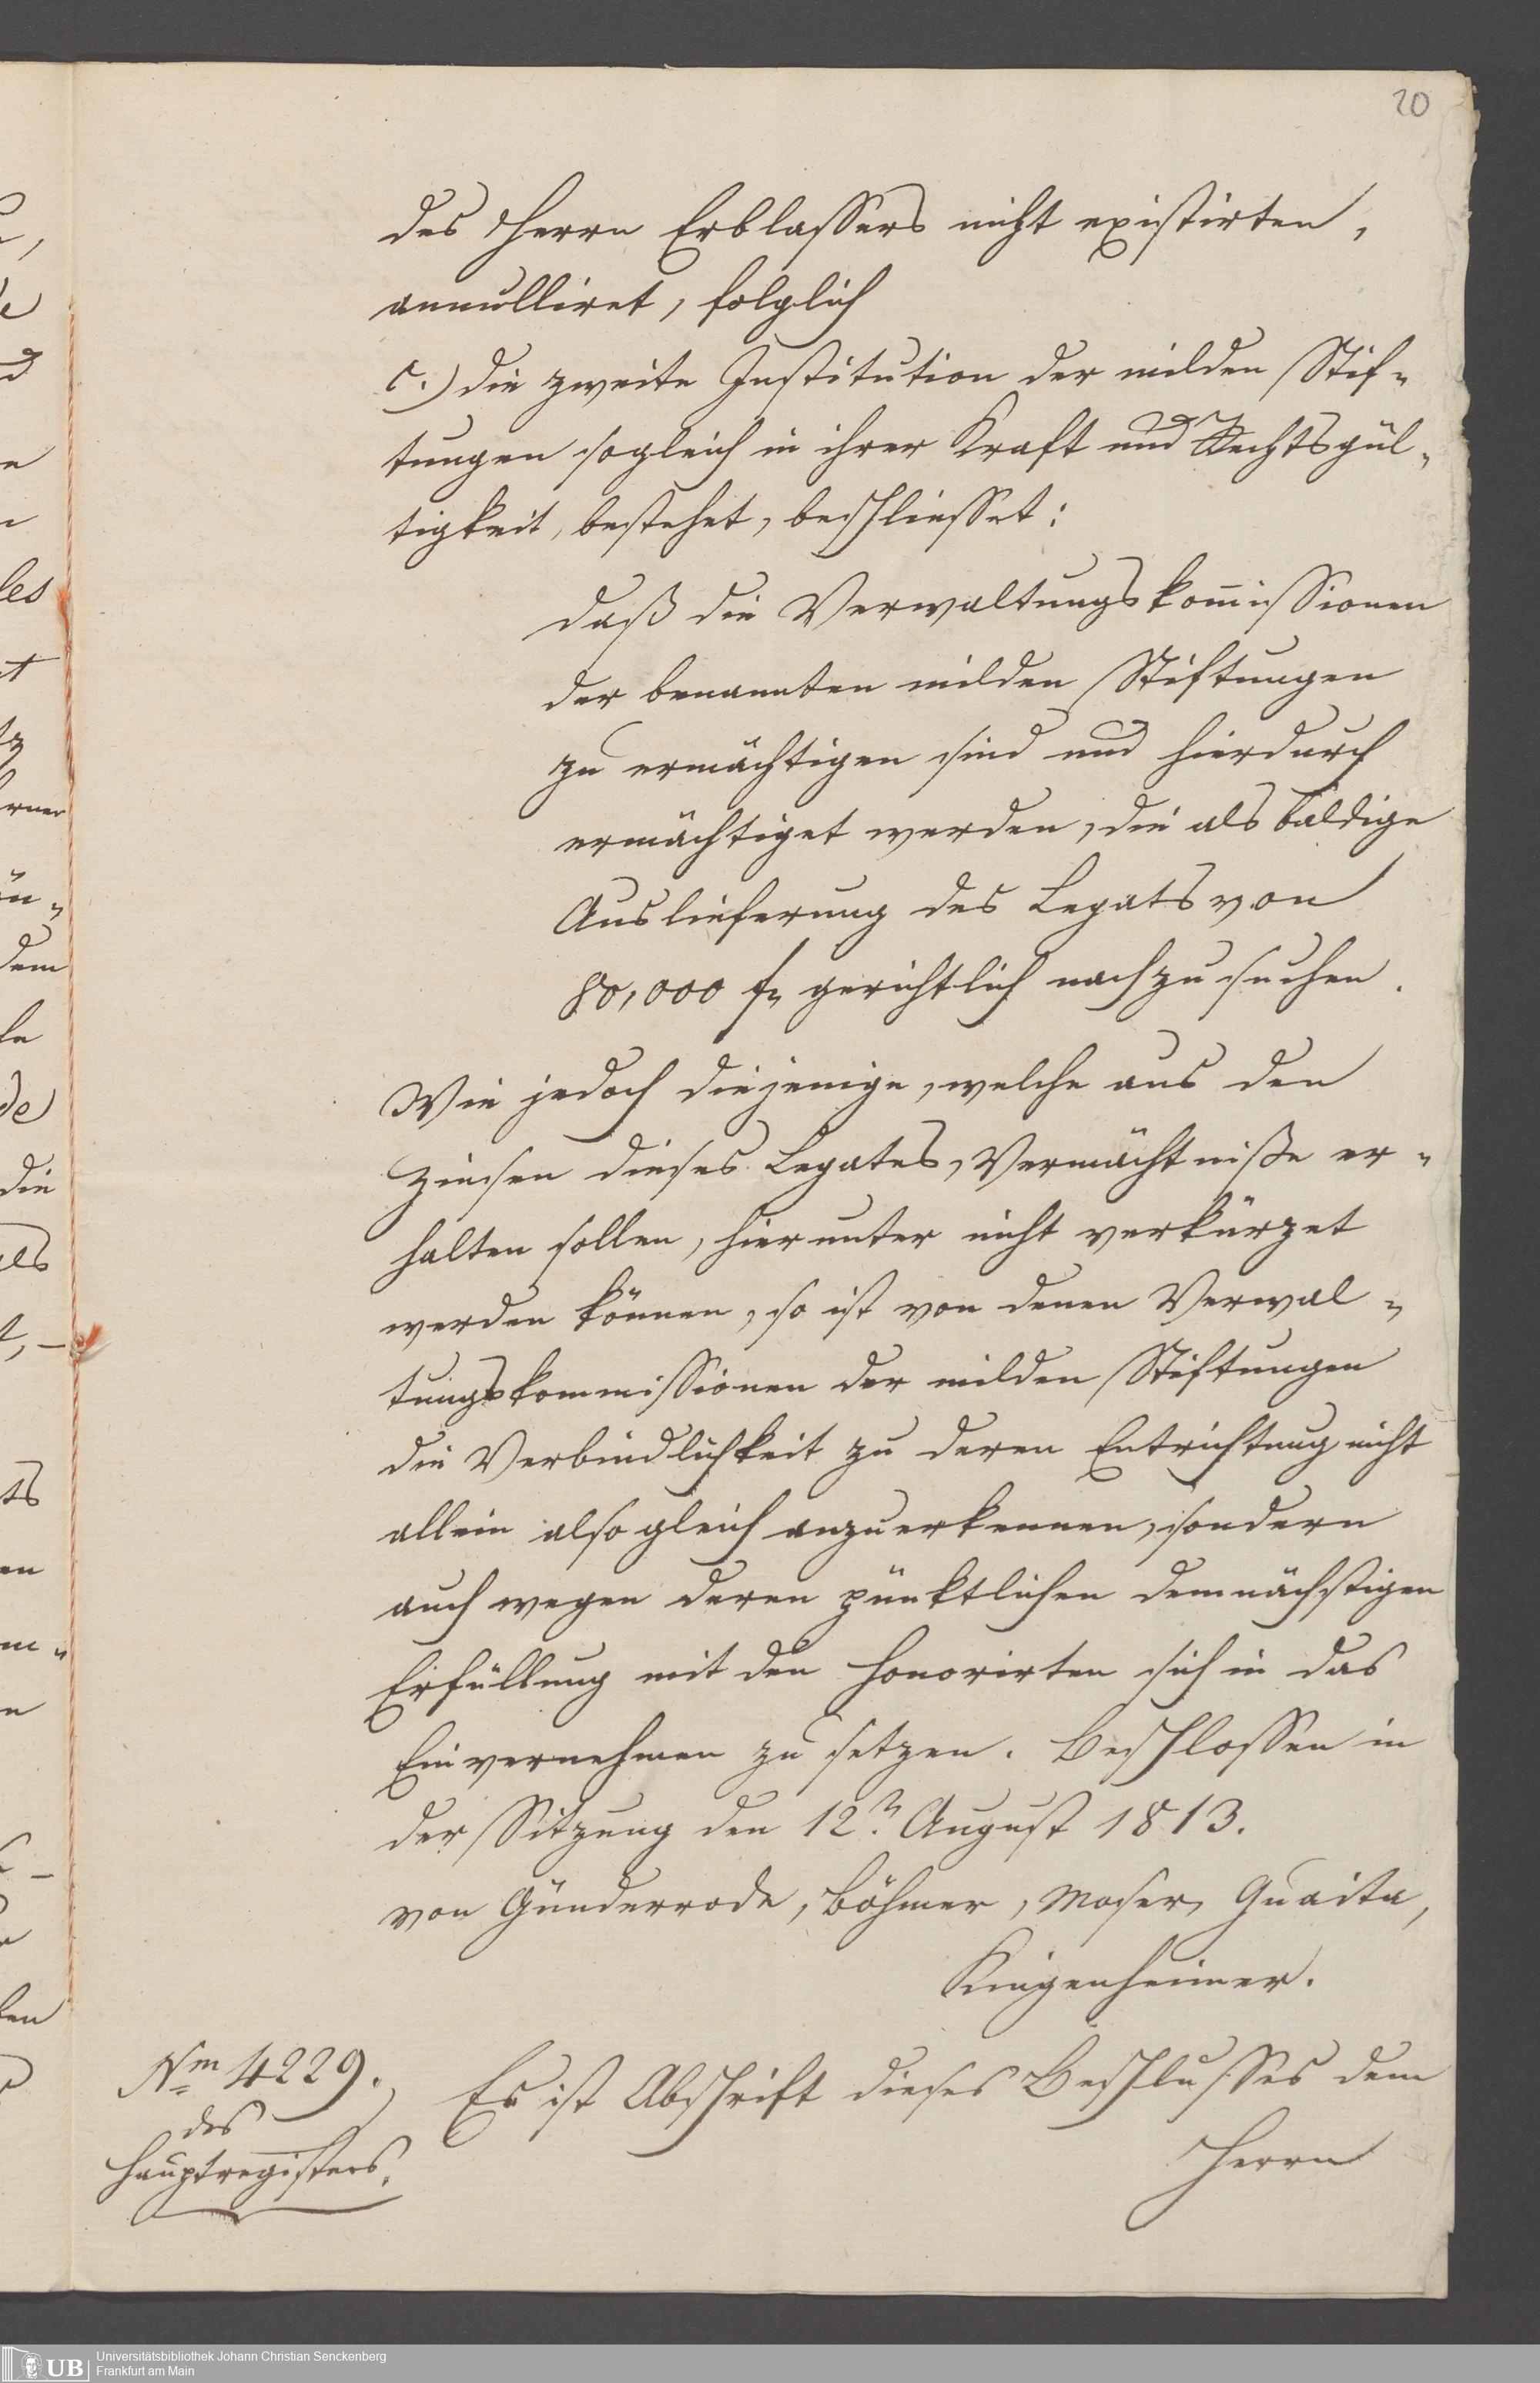 20
des Herrn Erblassers nicht existirten,
annulliret, folglich
c.) die zweite Institution der milden Stif-
tungen sogleich in ihrer Kraft und Rechtsgül-
tigkeit, bestehet, beschliesset:
daß die Verwaltungskom̅issionen
der benannten milden Stiftungen
zu ermächtigen sind und hierdurch
ermächtiget werden, die als baldige
Auslieferung des Legats von
80,000 f. gerichtlich nachzusuchen.
Wie jedoch diejenige, welche aus den
Zinsen dieses Legates, Vermächtniße er-
halten sollen, hierunter nicht verkürzet
werden können, so ist von denen Verwal-
tungskommissionen der milden Stiftungen
die Verbindlichkeit zu deren Entrichtung nicht
allein alsogleich anzuerkennen, sondern
auch wegen deren pünktlichen demnächstigen
Erfüllung mit den Honorirten sich in das
Einvernehmen zu setzen. Beschlossen in
der Sitzung den 12n. August 1813.
von Günderrode, Böhmer, Moser, Guaita,
Kingenheimer.
Nm 4229.
des
Hauptregisters.
Es ist Abschrift dieses Beschlusses dem
Herrn
UB Universitätsbibliothek Johann Christian Senckenberg
Frankfurt am Main